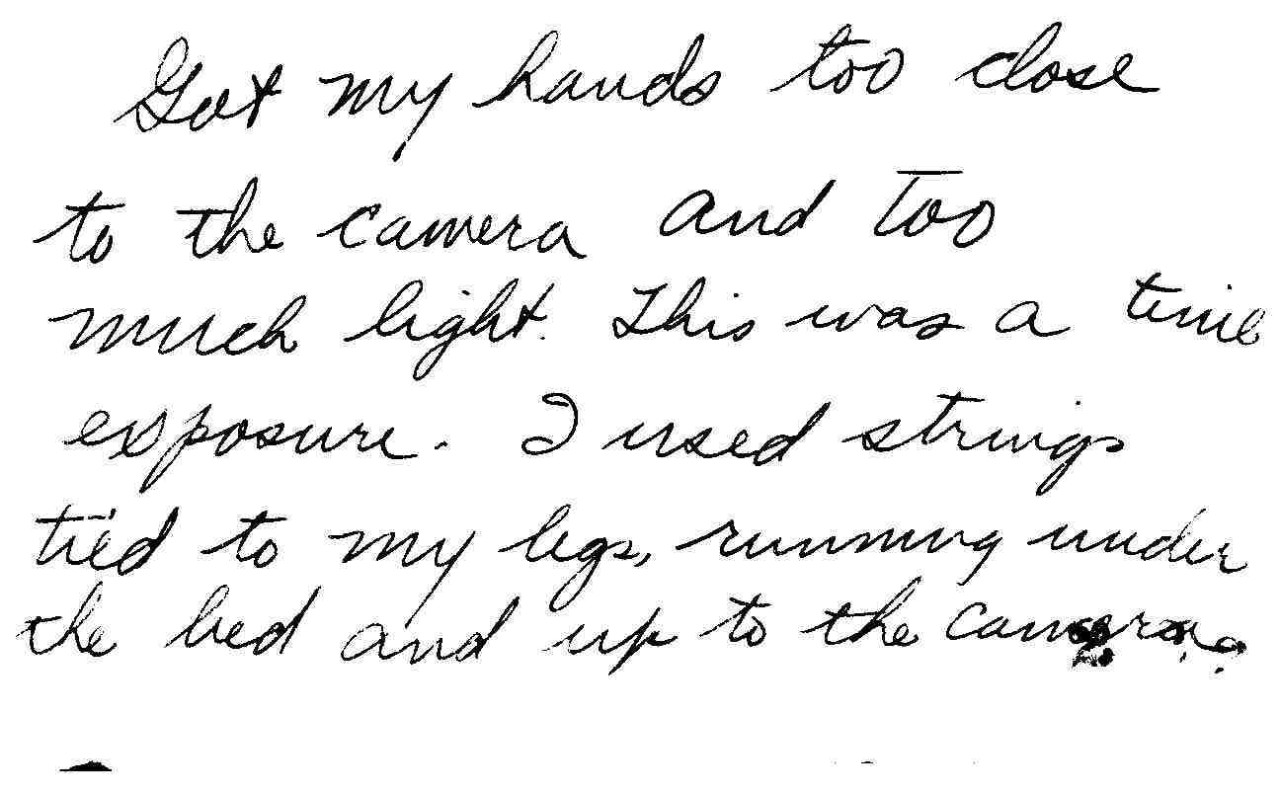 Got my hands too close
to the camera and too
much light. This was a time
exposure. I used strings
tied to my legs, running under
the bed and up to the camera.